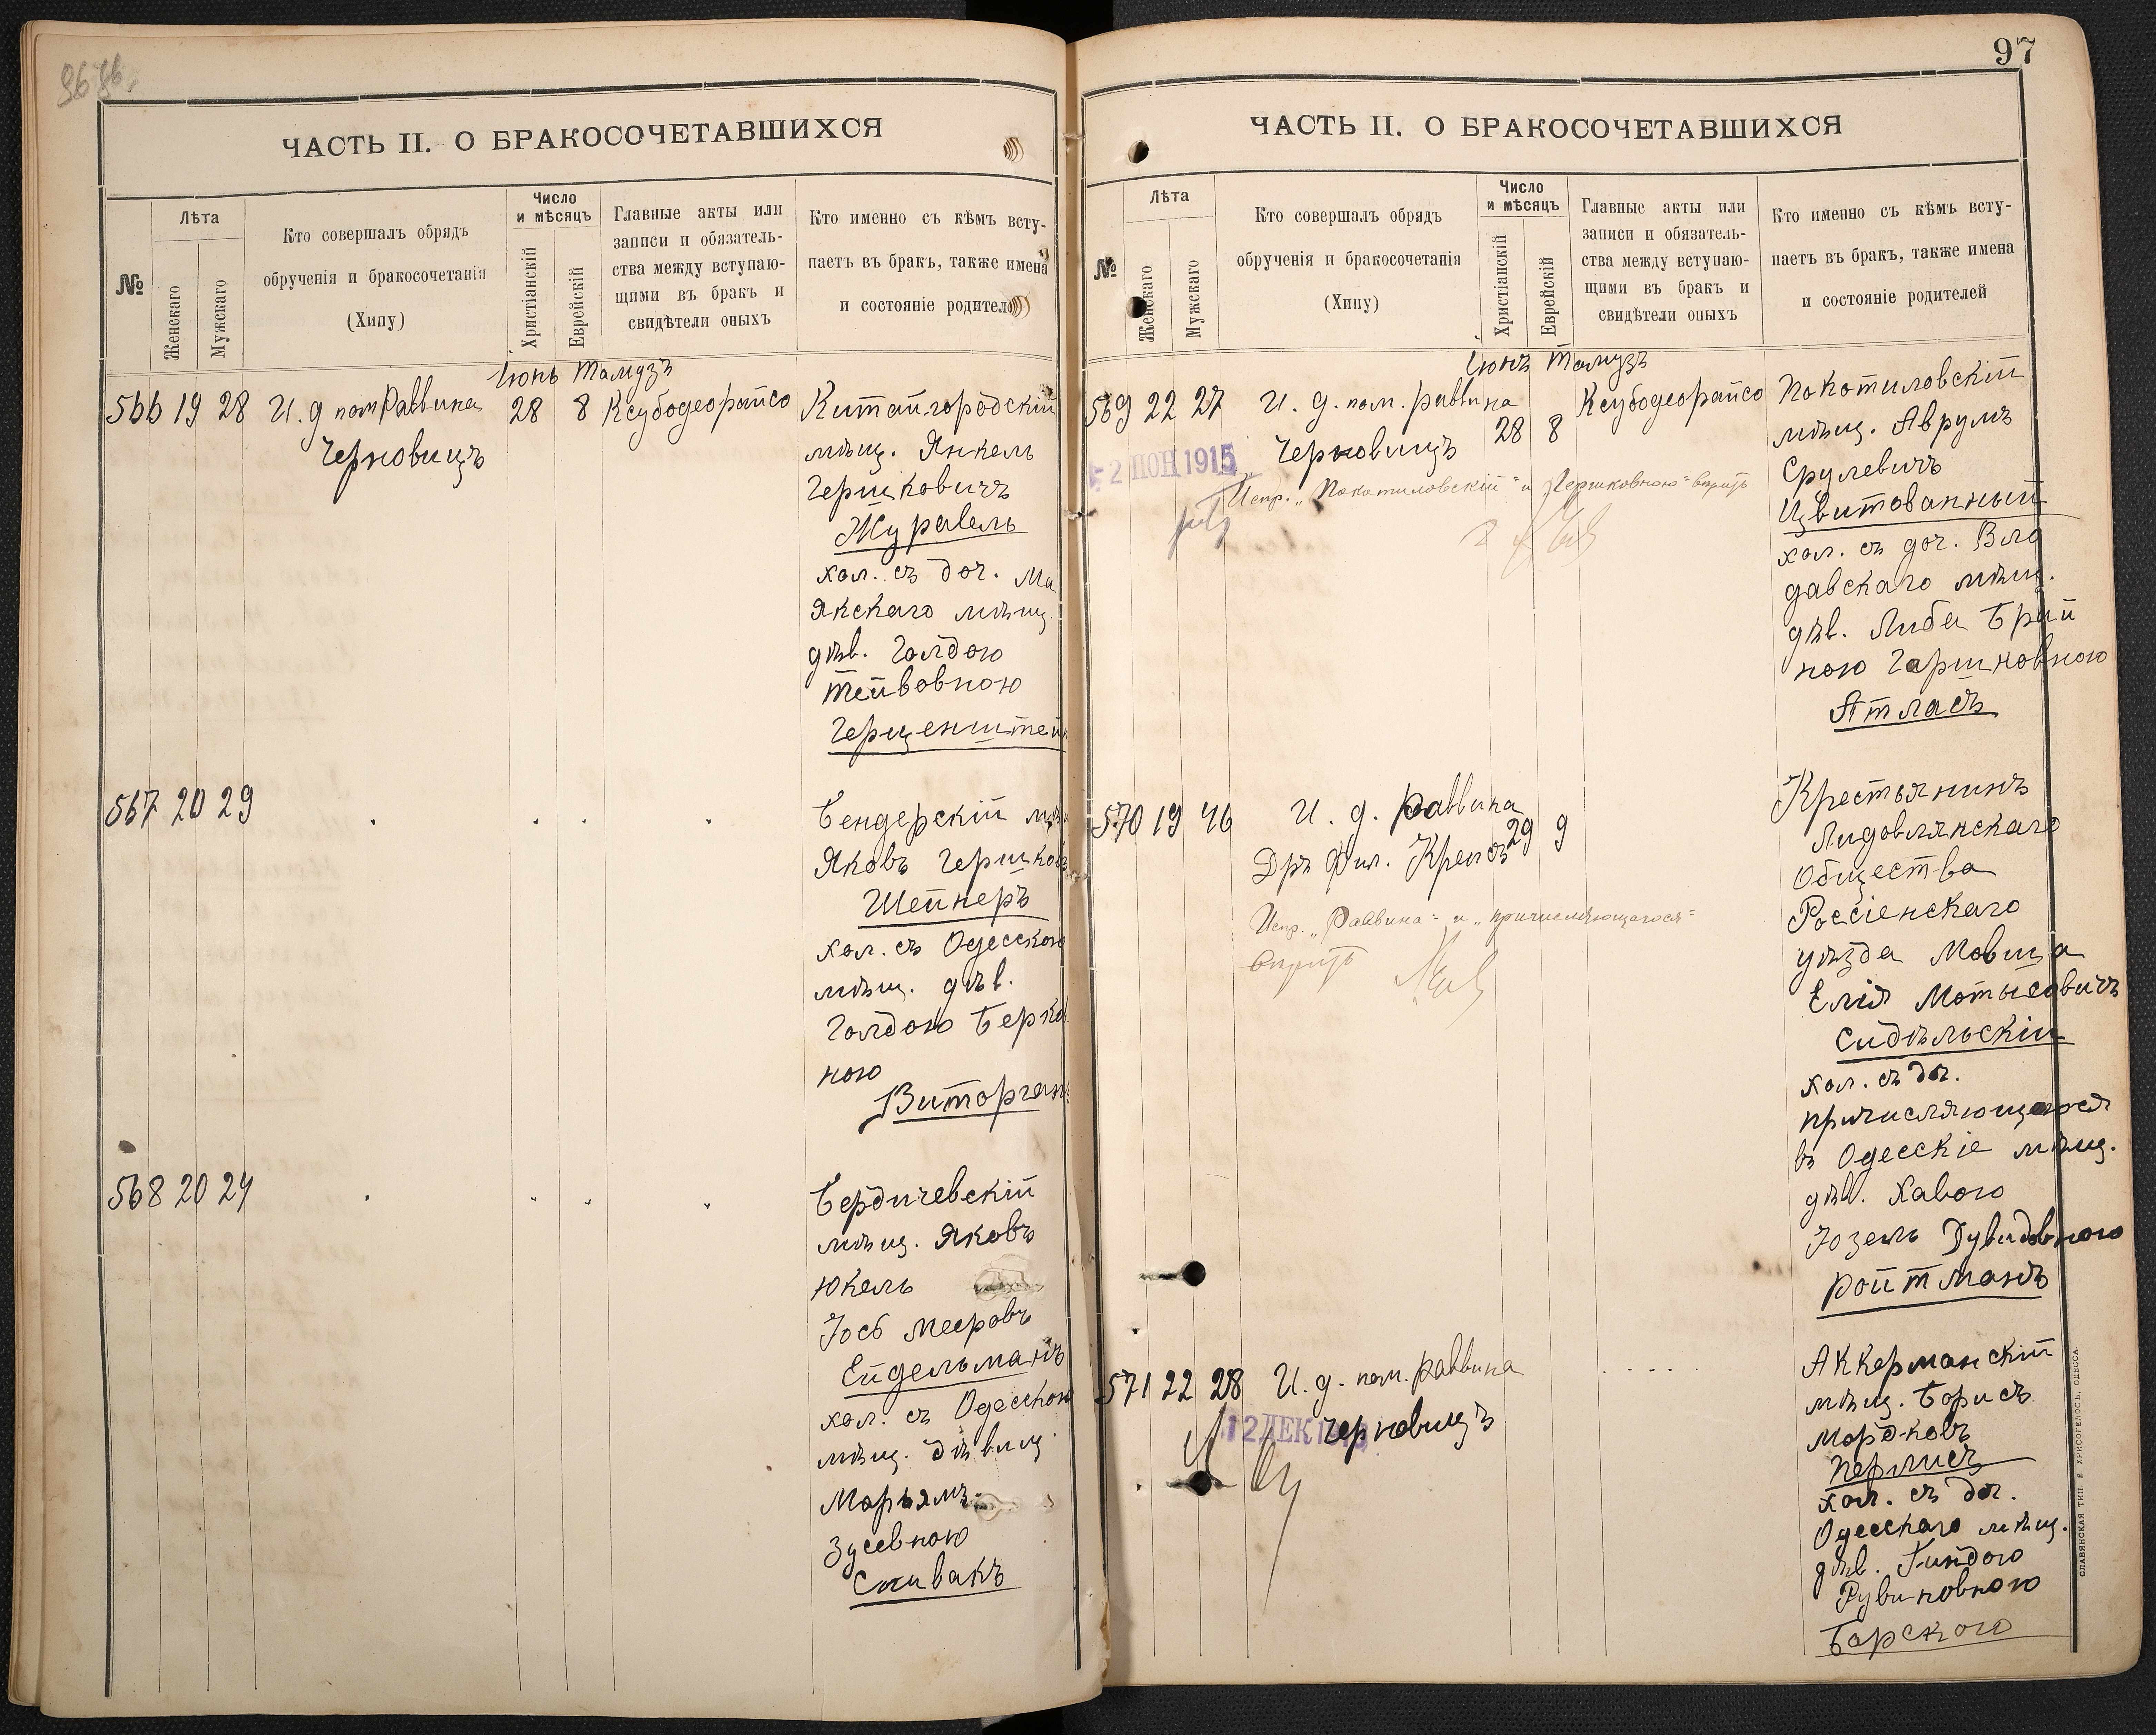 96
ЧАСТЬ II. О БРАКОСОЧЕТАВШИХСЯ
№
Лѣта
Женскаго
Мужскаго
Кто совершалъ обрядъ
обрученія и бракосочетанія
(Хипу)
Число
и мѣсяцъ
Христіанскій
Еврейскій
Главные акты или
записи и обязатель-
ства между вступаю-
щими въ бракъ и
свидѣтели оныхъ
Кто именно съ кѣмъ всту-
паетъ въ бракъ, также имена
и состояніе родителей
Іюнь Тамузъ
566 19 28 И. д пом Раввина 28 8 Ксубодеорайсо
Черновицъ
Китайгородскій
мѣщ. Янкель
Гершковичъ
Журавель
хол. съ доч. Ма
якскаго мѣщ.
дѣв. Голдою
Тейвовною
Герценштейн
567 20 29
Бендерскій мѣщ
Яковъ Гершков
Шейнеръ
хол. съ Одесскою
мѣщ. дѣв.
Голдою Берко
ною
Виторган
568 20 24
Бердичевскій
мѣщ. Яковъ
Юкель
Іосб Мееровъ
Ейдельманъ
хол. съ Одесскою
мѣщ. дѣвиц.
Марьямъ
Зусевною
Спивакъ
97
ЧАСТЬ II. О БРАКОСОЧЕТАВШИХСЯ
№
Лѣта
Женскаго
Мужскаго
Кто совершалъ обрядъ
обрученія и бракосочетанія
(Хипу)
Число
и мѣсяцъ
Христіанскій
Еврейскій
Главные акты или
записи и обязатель-
ства между вступаю-
щими въ бракъ и
свидѣтели оныхъ
Кто именно съ кѣмъ всту-
паетъ въ бракъ, также имена
и состояніе родителей
Іюнъ Тамузъ
569 22 27 И. д. пом. раввина 28 8 Ксубодеорайсо
Черновицъ
2 ІЮН 1915
Испр. „Покотиловскій" и „Гершковною" вѣрить
Покотиловскій
мѣщ. Аврумъ
Срулевичъ
Цвитованный
хол. съ доч. Вло
давскаго мѣщ.
дѣв. Либа Брай
ною Гершковною
Атласъ
570 19 46 И. д. Раввина 29 9
Дръ Фил. Крепсъ
Испр. „Раввина" и „причисляющагося"
вѣрить
Крестьянинъ
Лидовлянскаго
Общества
Россіенскаго
уѣзда Мовша
Елія Мотысовичъ
Сидѣльскій
хол. съ доч.
причисляющагося
въ Одесскіе мѣщ.
дѣв. Хавою
Іозель Дувидовною
Ройтманъ
571 22 28 И. д. пом. раввина
Черновицъ
12 ДЕК
Аккерманскій
мѣщ. Борисъ
Мордковъ
Перлисъ
хол. съ доч.
Одесскаго мѣщ.
дѣв. Гиндою
Рувиновною
Барскою
СЛАВЯНСКАЯ ТИП. Е. ХРИСОГЕЛОСЪ, ОДЕССА